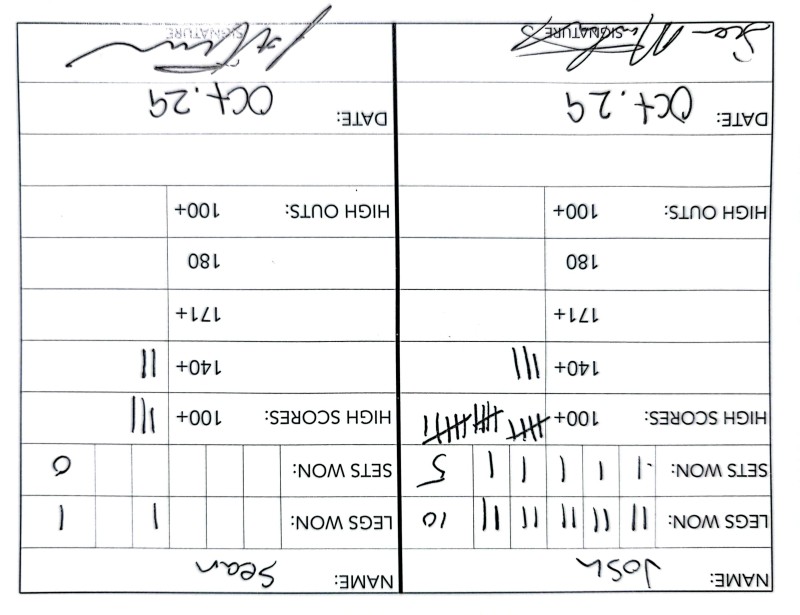 NAME: Josh
LEGS WON: II II II II II 10
SETS WON: I I I I I 5
HIGH SCORES: 100+
140+ III
171+
180
HIGH OUTS: 100+
DATE: Oct. 29
SIGNATURE
Sean
NAME: Sean
LEGS WON: I 1
SETS WON: 0
HIGH SCORES: 100+ III
140+ II
171+
180
HIGH OUTS: 100+
DATE: Oct. 29
SIGNATURE